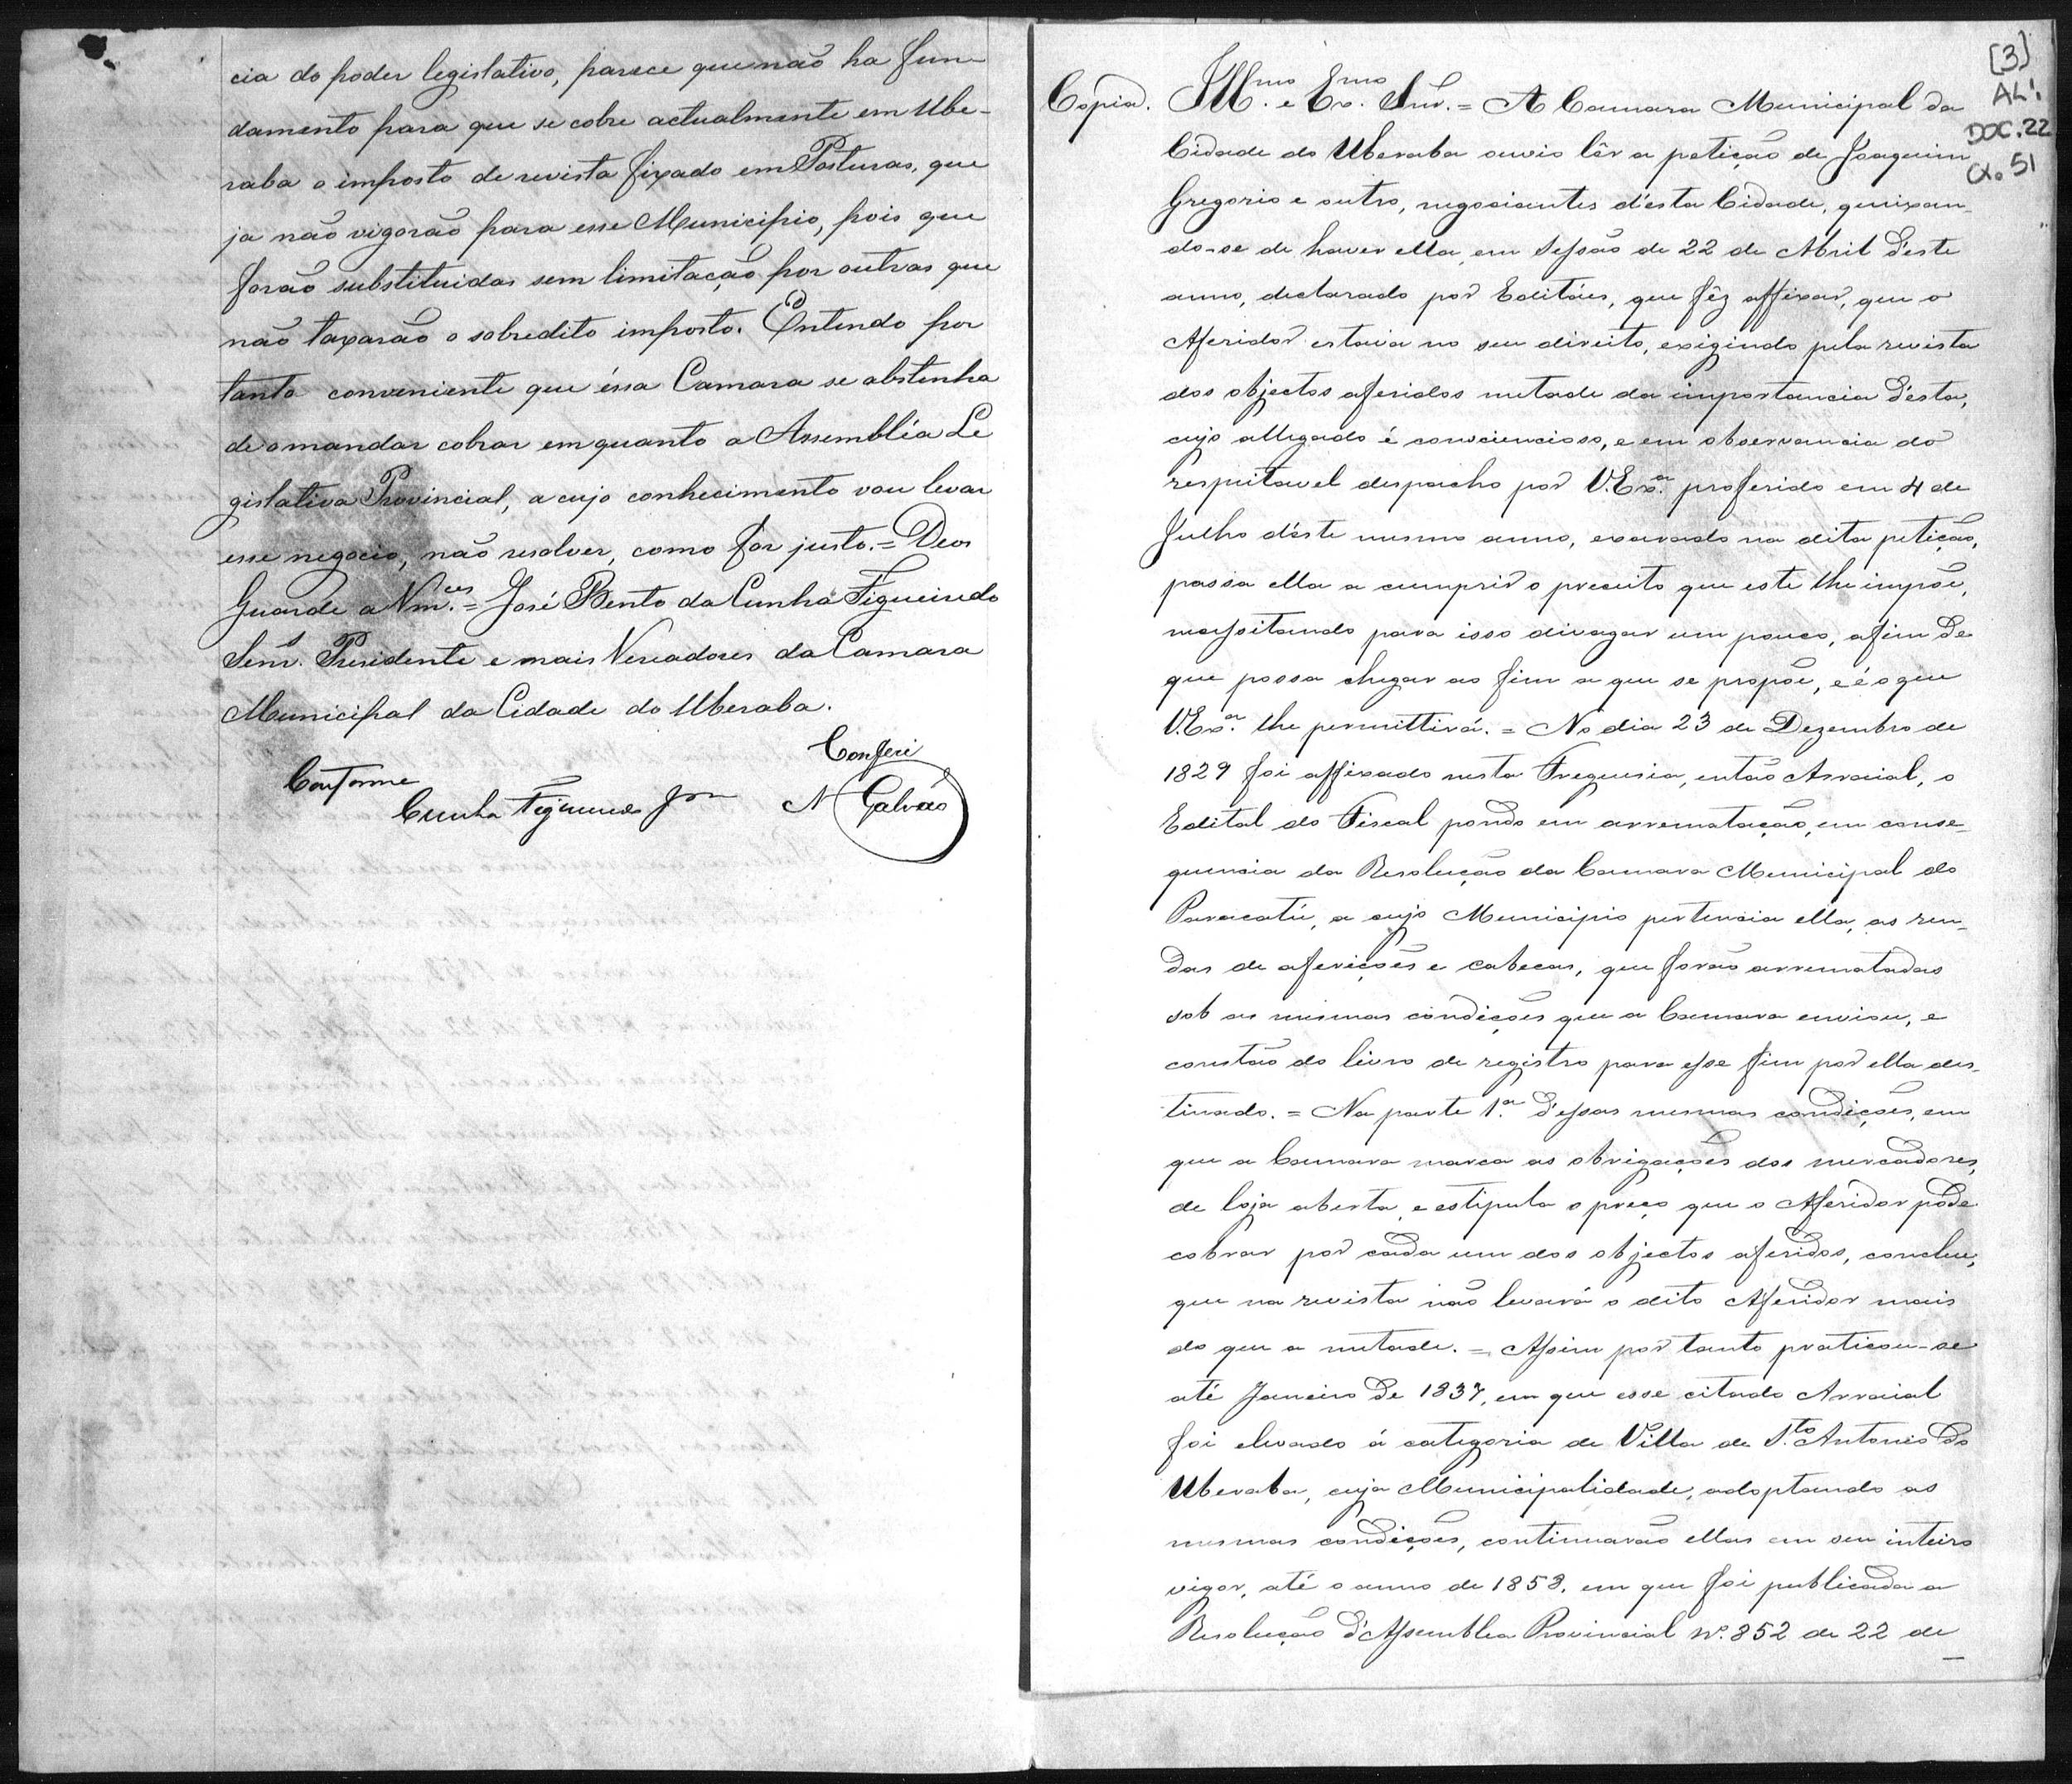 cia do poder legislativo, parece que não ha fun-
damento para que se cobre actualmente em Ube-
raba o imposto de revista fixado em Posturas, que
ja não vigorão para esse Municipio, pois que
forão substituidas sem limitação por outras que
não taxarão o sobredito imposto. Entendo por
tanto conveniente que éssa Camara se abstenha
de o mandar cobrar em quanto a Assembléa Le
gislativa Provincial, a cujo conhecimento vou levar
esse negocio, não resolver, como for justo. = Deos
Guarde a Vm.ces = José Bento da Cunha Figueiredo
Senr.s Presidente e mais Vereadores da Camara
Municipal da Cidade do Uberaba.
Conferi
Conforme
Cunha Figueiredo Jor
N Galvão
[3]
AL1.
DOC. 22
CX. 51
Copia. Illmo. e Exmo. Snr. = A Camara Municipal da
Cidade do Uberaba ouvio lêr a petição de Joaquim
Gregorio e outro, negociantes d'esta Cidade, queixan-
do-se de haver ella, em Sessão de 22 de Abril d'este
anno, declarado por Editáes, que fêz affixar, que o
Aferidor estava no seu direito, exigindo pela revista
dos objectos aferidos metade da importancia d'ésta,
cujo allegado é consciencioso, e em observancia do
respeitavel despacho por V. Exa. proferido em 4 de
Julho d'éste mesmo anno, exarado na dita petição,
passa ella a cumprir o preceito que este lhe impõe,
necessitando para isso divagar um pouco, afim de
que possa chegar ao fim a que se propõe, e é o que
V. Exa. lhe permittirá. = No dia 23 de Dezembro de
1829 foi affixado nesta Freguesia, então Arraial, o
Edital do Fiscal pondo em arrematação, em conse-
quencia da Resolução da Camara Municipal do
Paracatú, a cujo Municipio pertencia ella, as ren-
das de aferições e cabeças, que forão arrematadas
sob as mesmas condições que a Camara enviou, e
constão do livro de registro para esse fim por ella des-
tinado. = Na parte 1.a d'essas mesmas condições, em
que a Camara marca as obrigações dos mercadores,
de loja aberta, e estipula o preço que o Aferidor póde
cobrar por cada um dos objectos aferidos, conclue,
que na revista não levará o dito Aferidor mais
do que a metade. = Assim por tanto praticou-se
até Janeiro de 1837, em que esse citado Arraial
foi elevado á categoria de Villa de S.to Antonio do
Uberaba, cuja Municipalidade, adoptando as
mesmas condições, continuarão ellas em seu inteiro
vigor, até o anno de 1858, em que foi publicada a
Resolução d'Assemblea Provincial Nº. 852 de 22 de